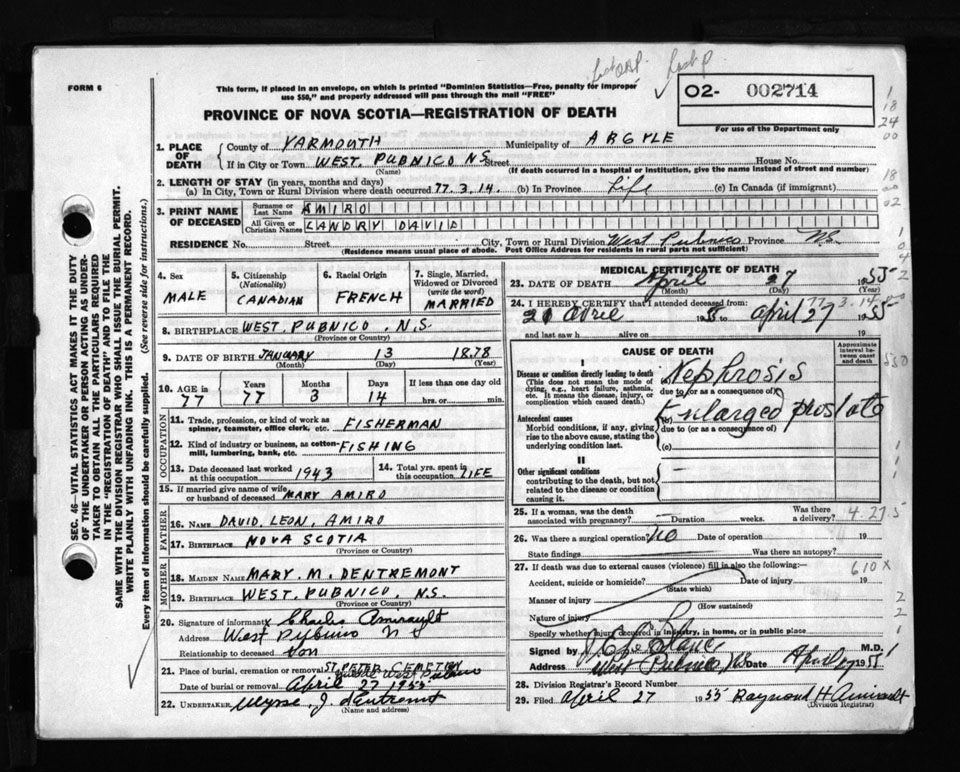 FORM 6
This form, if placed in an envelope, on which is printed "Dominion Statistics—Free, penalty for improper
use $50," and properly addressed will pass through the mail "FREE"
PROVINCE OF NOVA SCOTIA—REGISTRATION OF DEATH
02- 002714
For use of the Department only
1. PLACE OF DEATH
County of YARMOUTH Municipality of ARGYLE
If in City or Town WEST. PUBNICO N.S. Street House No.
(Name) (If death occurred in a hospital or institution, give the name instead of street and number)
2. LENGTH OF STAY (in years, months and days)
(a) In City, Town or Rural Division where death occurred 77. 3. 14. (b) In Province Life (c) In Canada (if immigrant)
3. PRINT NAME OF DECEASED
Surname or Last Name AMIRO
All Given or Christian Names LANDRY DAVID
RESIDENCE No. Street City, Town or Rural Division West Pubnico Province N.S.
(Residence means usual place of abode. Post Office Address for residents in rural parts not sufficient)
4. Sex MALE
5. Citizenship (Nationality) CANADIAN
6. Racial Origin FRENCH
7. Single, Married, Widowed or Divorced (write the word) MARRIED
8. BIRTHPLACE WEST. PUBNICO. N.S.
(Province or Country)
9. DATE OF BIRTH JANUARY 13 1878
(Month) (Day) (Year)
10. AGE in 77 Years 77 Months 3 Days 14 If less than one day old hrs. or min.
OCCUPATION
11. Trade, profession, or kind of work as spinner, teamster, office clerk, etc. FISHERMAN
12. Kind of industry or business, as cotton-mill, lumbering, bank, etc. FISHING
13. Date deceased last worked at this occupation 1943
14. Total yrs. spent in this occupation LIFE
15. If married give name of wife or husband of deceased MARY AMIRO
FATHER
16. NAME DAVID. LEON. AMIRO
17. BIRTHPLACE NOVA SCOTIA
(Province or Country)
MOTHER
18. MAIDEN NAME MARY. M. DENTREMONT
19. BIRTHPLACE WEST. PUBNICO. N.S.
(Province or Country)
20. Signature of informant x Charles Amirault
Address West Pubnico N S
Relationship to deceased Son
21. Place of burial, cremation or removal ST. PETER CEMETERY West Pubnico
Date of burial or removal April 27 1955
22. UNDERTAKER Ulysse. J. dentremont
(Name and address)
MEDICAL CERTIFICATE OF DEATH
23. DATE OF DEATH April 27 1955
(Month) (Day) (Year)
24. I HEREBY CERTIFY that I attended deceased from:
21 avril 195 to April 27 1955
and last saw h alive on 19
CAUSE OF DEATH
Approximate interval between onset and death
I
Disease or condition directly leading to death
(This does not mean the mode of dying, e.g., heart failure, asthenia, etc. It means the disease, injury, or complication which caused death.)
(a) Nephrosis
due to (or as a consequence of)
Antecedent causes
Morbid conditions, if any, giving rise to the above cause, stating the underlying condition last.
(b) Enlarged prostate
due to (or as a consequence of)
(c)
II
Other significant conditions
contributing to the death, but not related to the disease or condition causing it.
25. If a woman, was the death associated with pregnancy? — Duration weeks. Was there a delivery?
4.27 5
26. Was there a surgical operation? No Date of operation 19
State findings Was there an autopsy?
27. If death was due to external causes (violence) fill in also the following:—
610 X
Accident, suicide or homicide? Date of injury 19
(State which)
Manner of injury
(How sustained)
Nature of injury
Specify whether injury occurred in industry, in home, or in public place
Signed by M.D.
Address West Pubnico, NS Date April 27 1955
28. Division Registrar's Record Number
29. Filed April 27 1955 Raymond H Amirault
(Division Registrar)
SEC. 46—VITAL STATISTICS ACT MAKES IT THE DUTY
OF THE UNDERTAKER OR PERSON ACTING AS UNDERTAKER
TO OBTAIN ALL THE PARTICULARS REQUIRED
IN THE "REGISTRATION OF DEATH" AND TO FILE THE
SAME WITH THE DIVISION REGISTRAR WHO SHALL ISSUE THE BURIAL PERMIT.
WRITE PLAINLY WITH UNFADING INK. THIS IS A PERMANENT RECORD.
Every item of information should be carefully supplied. (See reverse side for instructions.)